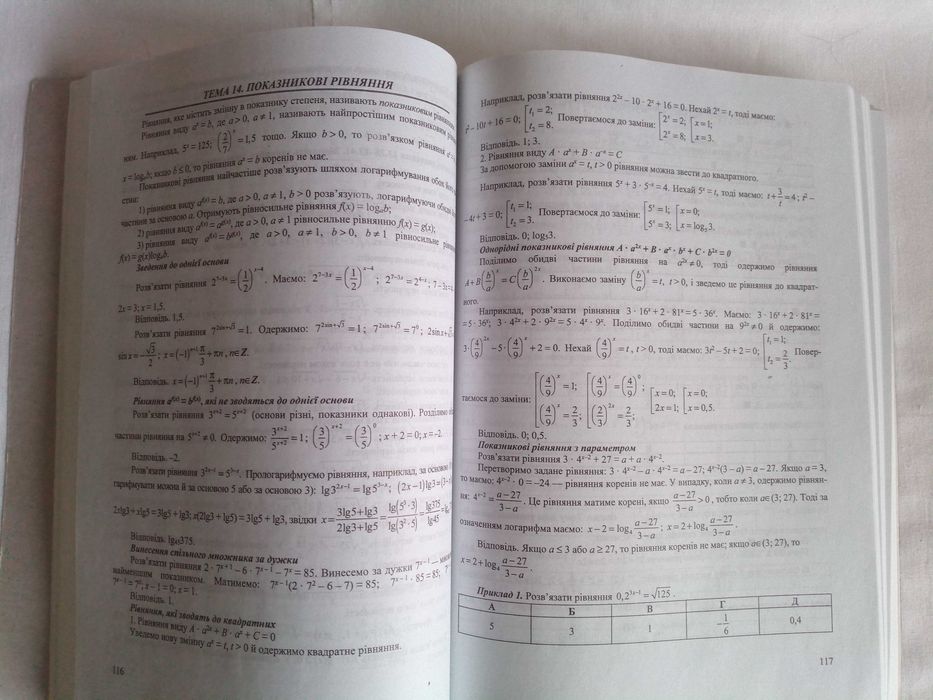 ТЕМА 14. ПОКАЗНИКОВІ РІВНЯННЯ
Рівняння, яке містить змінну в показнику степеня, називають показниковим
Рівняння виду aˣ = b, де a > 0, a ≠ 1, називають найпростішим показниковим
ням. Наприклад, 5ˣ = 125; (2/7)ˣ = 1,5 тощо. Якщо b > 0, то розв'язком рівняння
x = logₐb; якщо b ≤ 0, то рівняння aˣ = b коренів не має.
Показникові рівняння найчастіше розв'язують шляхом логарифмування обох
1) рівняння виду a^f(x) = b, де a > 0, a ≠ 1, b > 0 розв'язують, логарифмуючи обидві
частини за основою a. Отримують рівносильне рівняння f(x) = logₐb;
2) рівняння виду a^f(x) = a^g(x), де a > 0, a ≠ 1 рівносильне рівнянню f(x) = g(x);
3) рівняння виду a^f(x) = b^g(x), де a > 0, a ≠ 1, b > 0, b ≠ 1 рівносильне
f(x) = g(x)logₐb.
Зведення до однієї основи
Розв'язати рівняння 2^(7−3x) = (1/2)^(x−4). Маємо: 2^(7−3x) = (1/2)^(x−4); 2^(7−3x) = 2^(4−x); 7 − 3x = 4
2x = 3; x = 1,5.
Відповідь. 1,5.
Розв'язати рівняння 7^(2sinx+√3) = 1. Одержимо: 7^(2sinx+√3) = 1; 7^(2sinx+√3) = 7⁰; 2sinx +
sin x = −√3/2; x = (−1)ⁿ⁺¹ π/3 + πn, n∈Z.
Відповідь. x = (−1)ⁿ⁺¹ π/3 + πn, n∈Z.
Рівняння a^f(x) = b^f(x), які не зводяться до однієї основи
Розв'язати рівняння 3ˣ⁺² = 5ˣ⁺² (основи різні, показники однакові). Розділимо
частини рівняння на 5ˣ⁺² ≠ 0. Одержимо: 3ˣ⁺²/5ˣ⁺² = 1; (3/5)ˣ⁺² = (3/5)⁰; x + 2 = 0; x = −2.
Відповідь. −2.
Розв'язати рівняння 3²ˣ⁻¹ = 5³⁻ˣ. Прологарифмуємо рівняння, наприклад, за основою
гарифмувати можна й за основою 5 або за основою 3): lg3²ˣ⁻¹ = lg5³⁻ˣ; (2x − 1)lg3 =
2xlg3 + xlg5 = 3lg5 + lg3; x(2lg3 + lg5) = 3lg5 + lg3, звідки x = (3lg5 + lg3)/(2lg3 + lg5) = lg(5³·3)/lg(3²·5) = lg375/lg45
Відповідь. log₄₅375.
Винесення спільного множника за дужки
Розв'язати рівняння 2 · 7ˣ⁺¹ − 6 · 7ˣ⁻¹ − 7ˣ = 85. Винесемо за дужки 7ˣ⁻¹ —
найменшим показником. Матимемо: 7ˣ⁻¹(2 · 7² − 6 − 7) = 85; 7ˣ⁻¹ · 85 = 85;
7ˣ⁻¹ = 7⁰, x − 1 = 0; x = 1.
Відповідь. 1.
Рівняння, які зводять до квадратних
1. Рівняння виду A · a²ˣ + B · aˣ + C = 0
Уведемо нову змінну aˣ = t, t > 0 й одержимо квадратне рівняння.
116
Наприклад, розв'язати рівняння 2²ˣ − 10 · 2ˣ + 16 = 0. Нехай 2ˣ = t, тоді маємо:
t² − 10t + 16 = 0; [t₁ = 2; t₂ = 8. Повертаємося до заміни: [2ˣ = 2; 2ˣ = 8; [x = 1; x = 3.
Відповідь. 1; 3.
2. Рівняння виду A · aˣ + B · a⁻ˣ = C
За допомогою заміни aˣ = t, t > 0 рівняння можна звести до квадратного.
Наприклад, розв'язати рівняння 5ˣ + 3 · 5⁻ˣ = 4. Нехай 5ˣ = t, тоді маємо: t + 3/t = 4; t² −
− 4t + 3 = 0; [t₁ = 1; t₂ = 3. Повертаємося до заміни: [5ˣ = 1; 5ˣ = 3; [x = 0; x = log₅3.
Відповідь. 0; log₅3.
Однорідні показникові рівняння A · a²ˣ + B · aˣ · bˣ + C · b²ˣ = 0
Поділимо обидві частини рівняння на a²ˣ ≠ 0, тоді одержимо рівняння
A + B(b/a)ˣ = C(b/a)²ˣ. Виконаємо заміну (b/a)ˣ = t, t > 0, і зведемо це рівняння до квадрат-
ного.
Наприклад, розв'язати рівняння 3 · 16ˣ + 2 · 81ˣ = 5 · 36ˣ. Маємо: 3 · 16ˣ + 2 · 81ˣ =
= 5 · 36ˣ; 3 · 4²ˣ + 2 · 9²ˣ = 5 · 4ˣ · 9ˣ. Поділимо обидві частини на 9²ˣ ≠ 0 й одержимо:
3·(4/9)²ˣ − 5·(4/9)ˣ + 2 = 0. Нехай (4/9)ˣ = t, t > 0, тоді маємо: 3t² − 5t + 2 = 0; [t₁ = 1; t₂ = 2/3. Повер-
таємося до заміни: [(4/9)ˣ = 1; (4/9)ˣ = 2/3; [(4/9)ˣ = (4/9)⁰; (2/3)²ˣ = 2/3; [x = 0; 2x = 1; [x = 0; x = 0,5.
Відповідь. 0; 0,5.
Показникові рівняння з параметром
Розв'язати рівняння 3 · 4ˣ⁻² + 27 = a + a · 4ˣ⁻².
Перетворимо задане рівняння: 3 · 4ˣ⁻² − a · 4ˣ⁻² = a − 27; 4ˣ⁻²(3 − a) = a − 27. Якщо a = 3,
то маємо: 4ˣ⁻² · 0 = −24 — рівняння коренів не має. У випадку, коли a ≠ 3, одержимо рівнян-
ня: 4ˣ⁻² = (a − 27)/(3 − a). Це рівняння матиме корені, якщо (a − 27)/(3 − a) > 0, тобто коли a∈(3; 27). Тоді за
означенням логарифма маємо: x − 2 = log₄ (a − 27)/(3 − a); x = 2 + log₄ (a − 27)/(3 − a).
Відповідь. Якщо a ≤ 3 або a ≥ 27, то рівняння коренів не має; якщо a∈(3; 27), то
x = 2 + log₄ (a − 27)/(3 − a).
Приклад 1. Розв'язати рівняння 0,2³ˣ⁻¹ = √125.
А Б В Г Д
5 3 1 −1/6 0,4
117